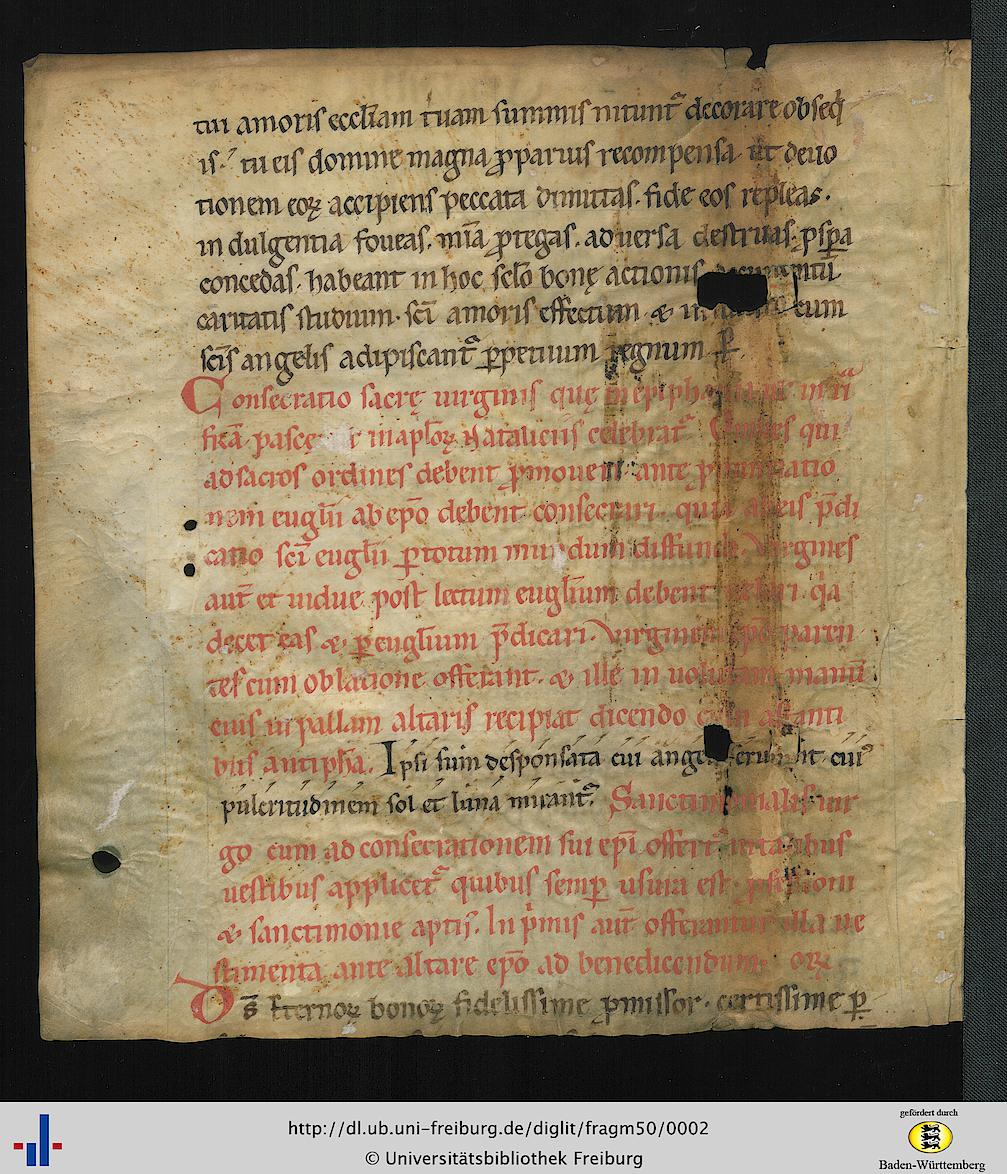 tui amoris eccl̄iam tuam summis nitunt᷑ decorare obseq̇
is. tu eis domine magna ꝓ paruis recompensa. ut deuo
tionem eoꝝ accipiens peccata dimittas. fide eos repleas.
in dulgentia foueas. mīa ꝓtegas. aduersa destruas. ꝓspa
concedas. habeant in hoc sc̄lo bonę actionis
caritatis studium. sc̄i amoris effectum & in cum
sc̄is angelis adipiscant᷑ ꝑpetuum regnum ꝑ.
Consecratio sacrę uirginis quę in epiphania
ficā pascę in ap̄loꝝ Nataliciis celebrat᷑ Omnes qui
ad sacros ordines debent ꝓmoueri ante
nem eugl̄ii ab ep̄o debent consecrari. quia ab eis p̄di
catio sc̄i eugl̄ii ꝑ totum mundum diffundit. Virgines
aut̄ et uidue post lectum eugl̄ium debent uelari. q̇a
decet eas & ꝑ eugl̄ium p̄dicari. Virginem ep̄o paren
tes cum oblatione offerant. & ille in uolutam manū
eius in pallam altaris recipiat dicendo cum astanti
bus antiph̄a. Ipsi sum desponsata cui angeli seruiunt. cui᷒
pulcritudinem sol et luna mirant᷑. Sanctimonialis uir
go cum ad consecrationem sui ep̄i offert᷑ in talibus
uestibus applicet᷑ quibus semꝑ usura est. ꝓfessioni
& sanctimonie aptis. In p̓mis aut̄ offerantur illa ue
stimenta ante altare ep̄o ad benedicendum. or̄
Ds̄ Eternoꝝ bonoꝝ fidelissime ꝓmissor. certissime ꝑ
http://dl.ub.uni-freiburg.de/diglit/fragm50/0002
© Universitätsbibliothek Freiburg
gefördert durch
Baden-Württemberg